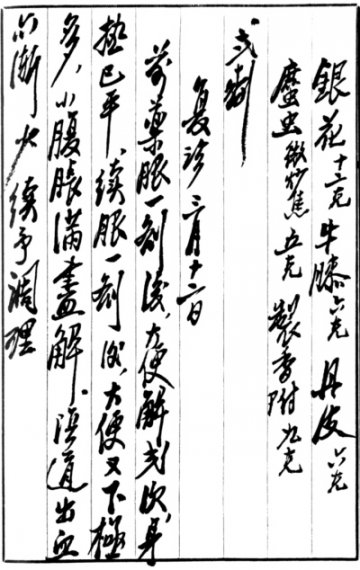 銀花十二克 牛膝六克 丹皮六克
䗪虫微炒焦五克 製香附九克
弍劑
复診 三月十二日
前藥服一劑後，大便解弍次，身
热已平，续服一劑後，大便又下極
多，小腹脹滿盡解，陰道出血
亦漸少 续予調理